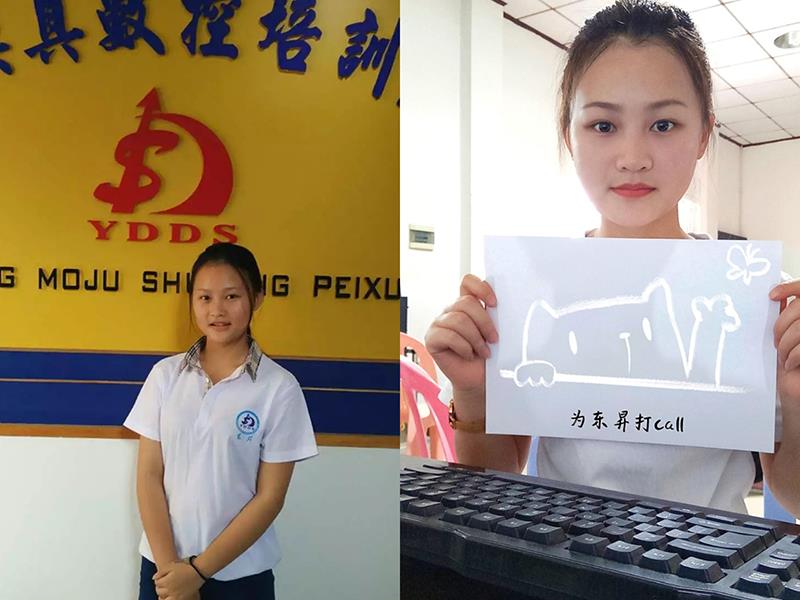 具數控培訓
YDDS
G MOJU SHU NG PEIXU
为东昇打call